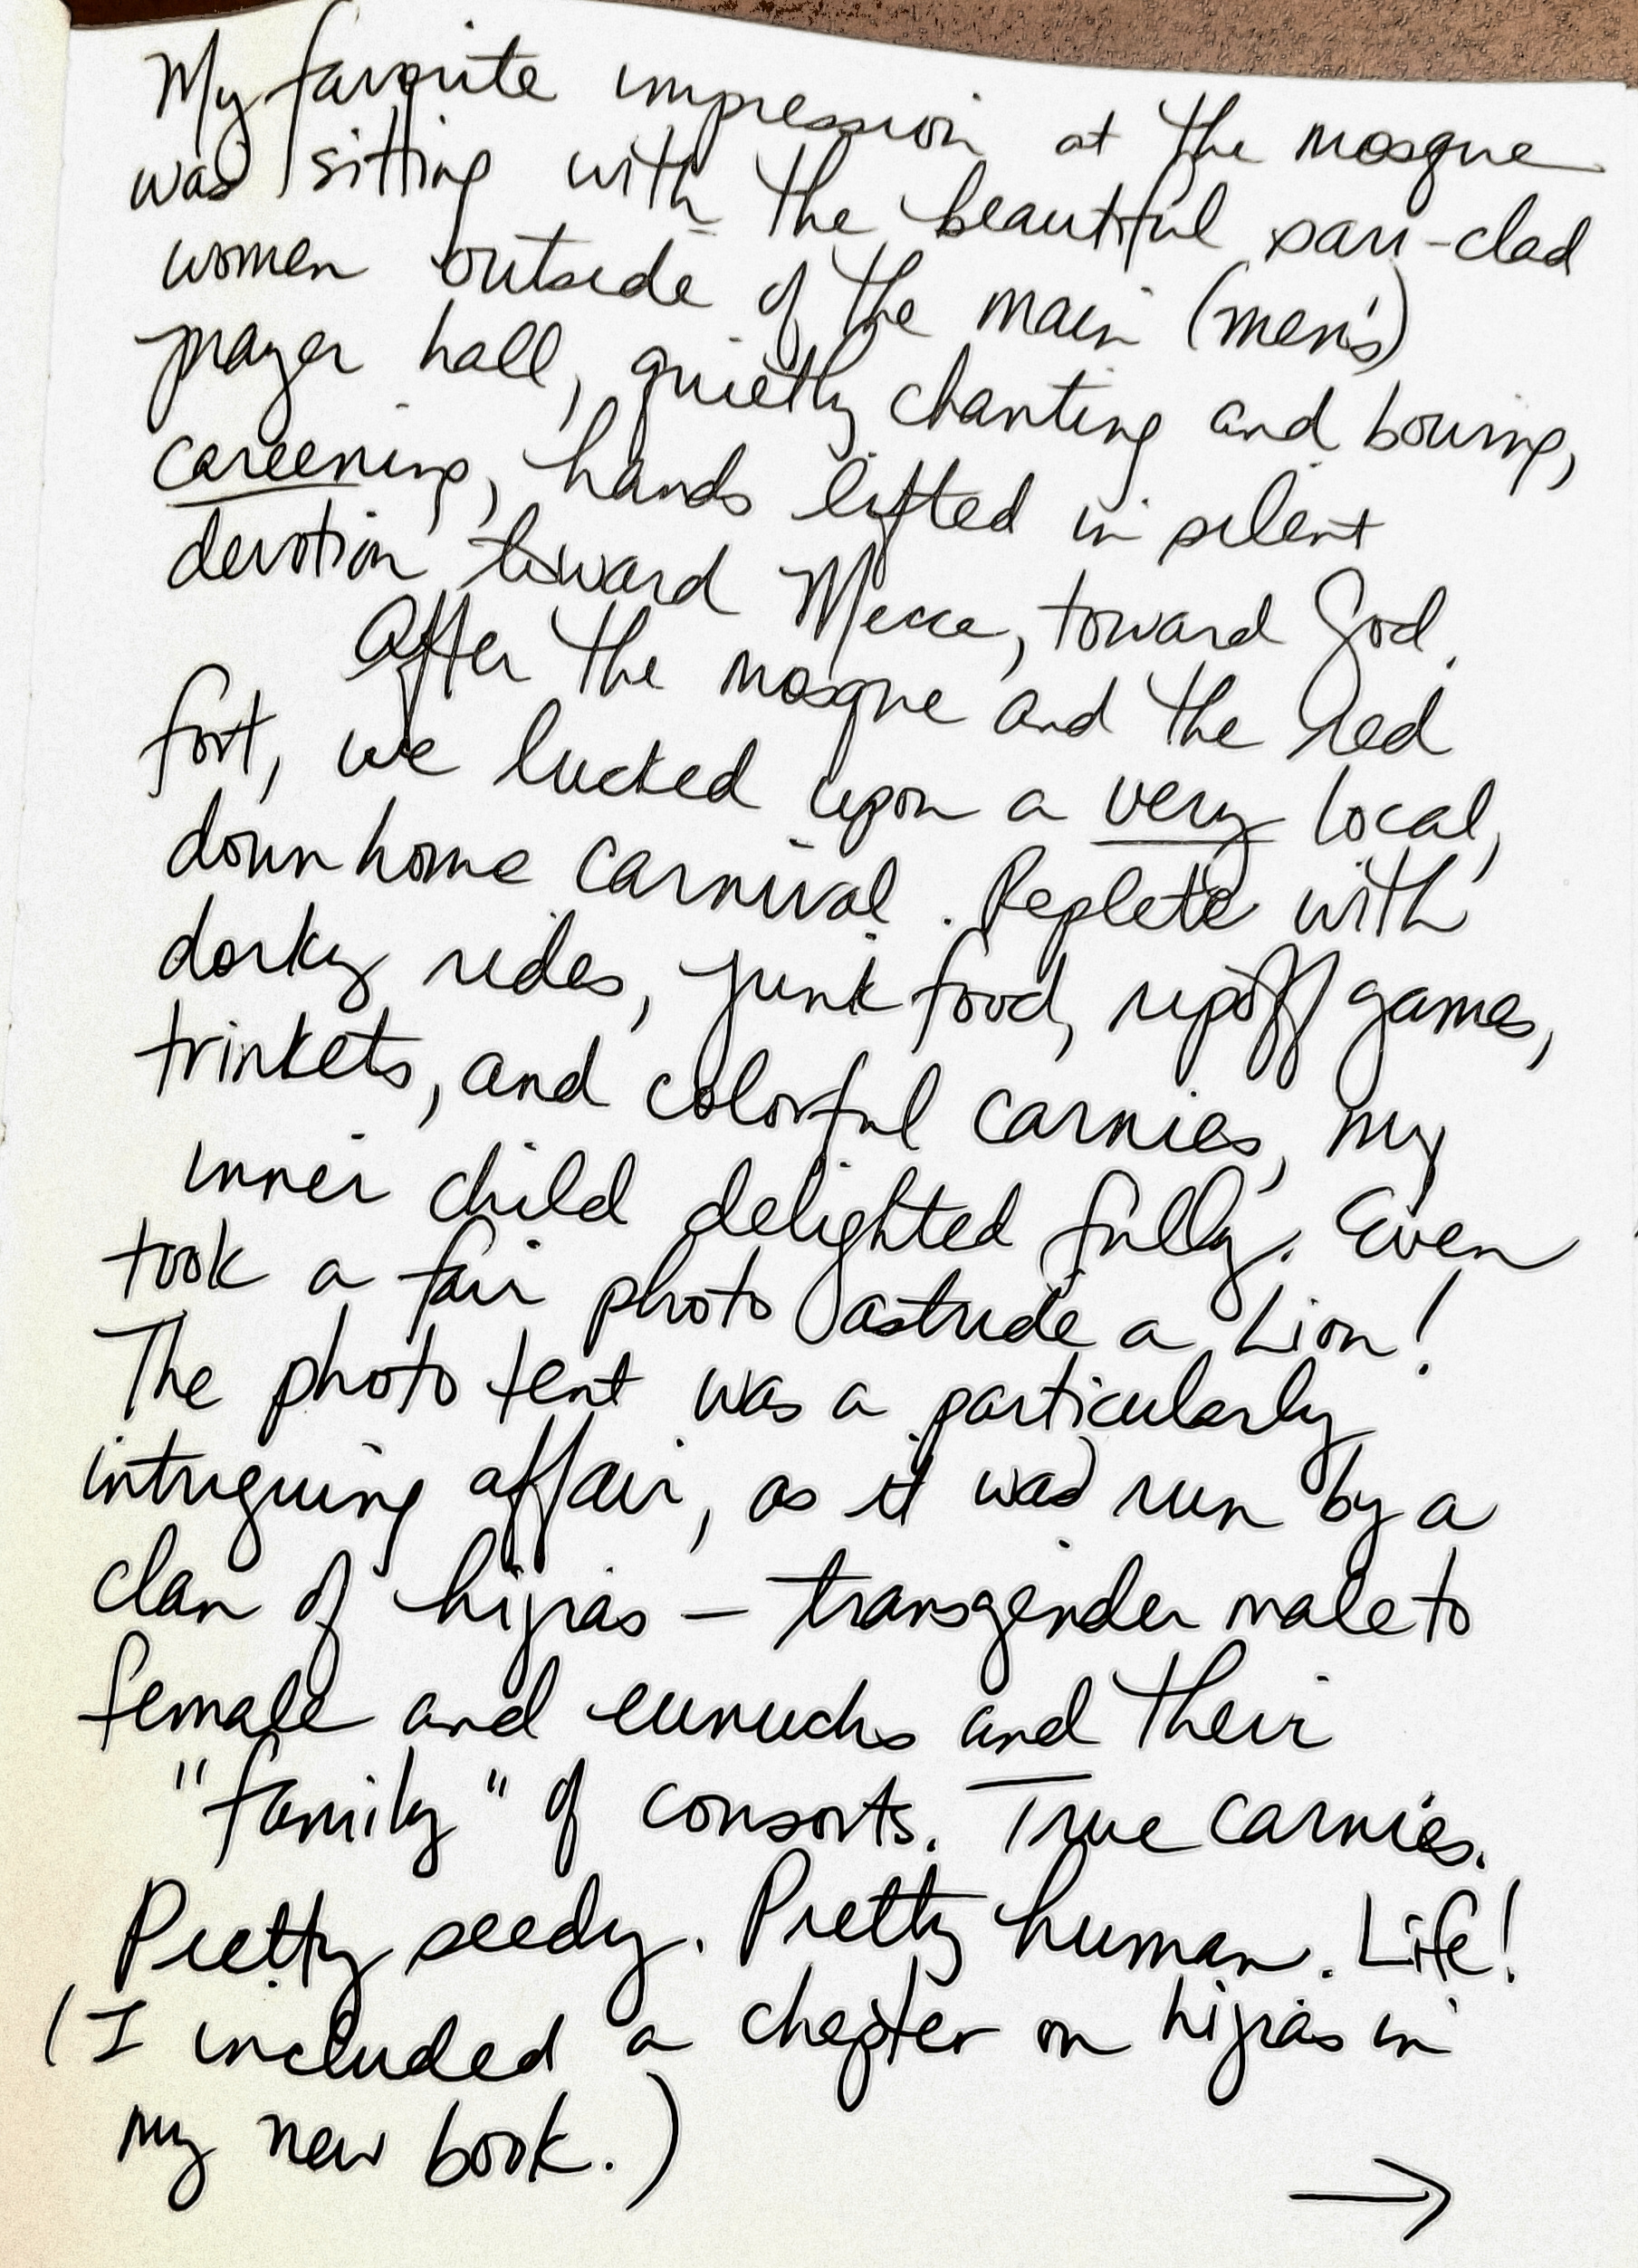 My favorite impression at the mosque
was sitting with the beautiful sari-clad
women outside of the main (men's)
prayer hall, quietly chanting and bowing,
careening, hands lifted in silent
devotion toward Mecca, toward God.
After the mosque and the Red
fort, we lucked upon a very local,
downhome carnival. Replete with
dorky rides, junk food, ripoff games,
trinkets, and colorful carnies, my
inner child delighted fully. Even
took a fair photo astride a Lion!
The photo tent was a particularly
intriguing affair, as it was run by a
clan of hijras — transgender male to
female and eunuchs and their
"family" of consorts. True carnies.
Pretty seedy. Pretty human. Life!
(I included a chapter on hijras in
my new book.)
→